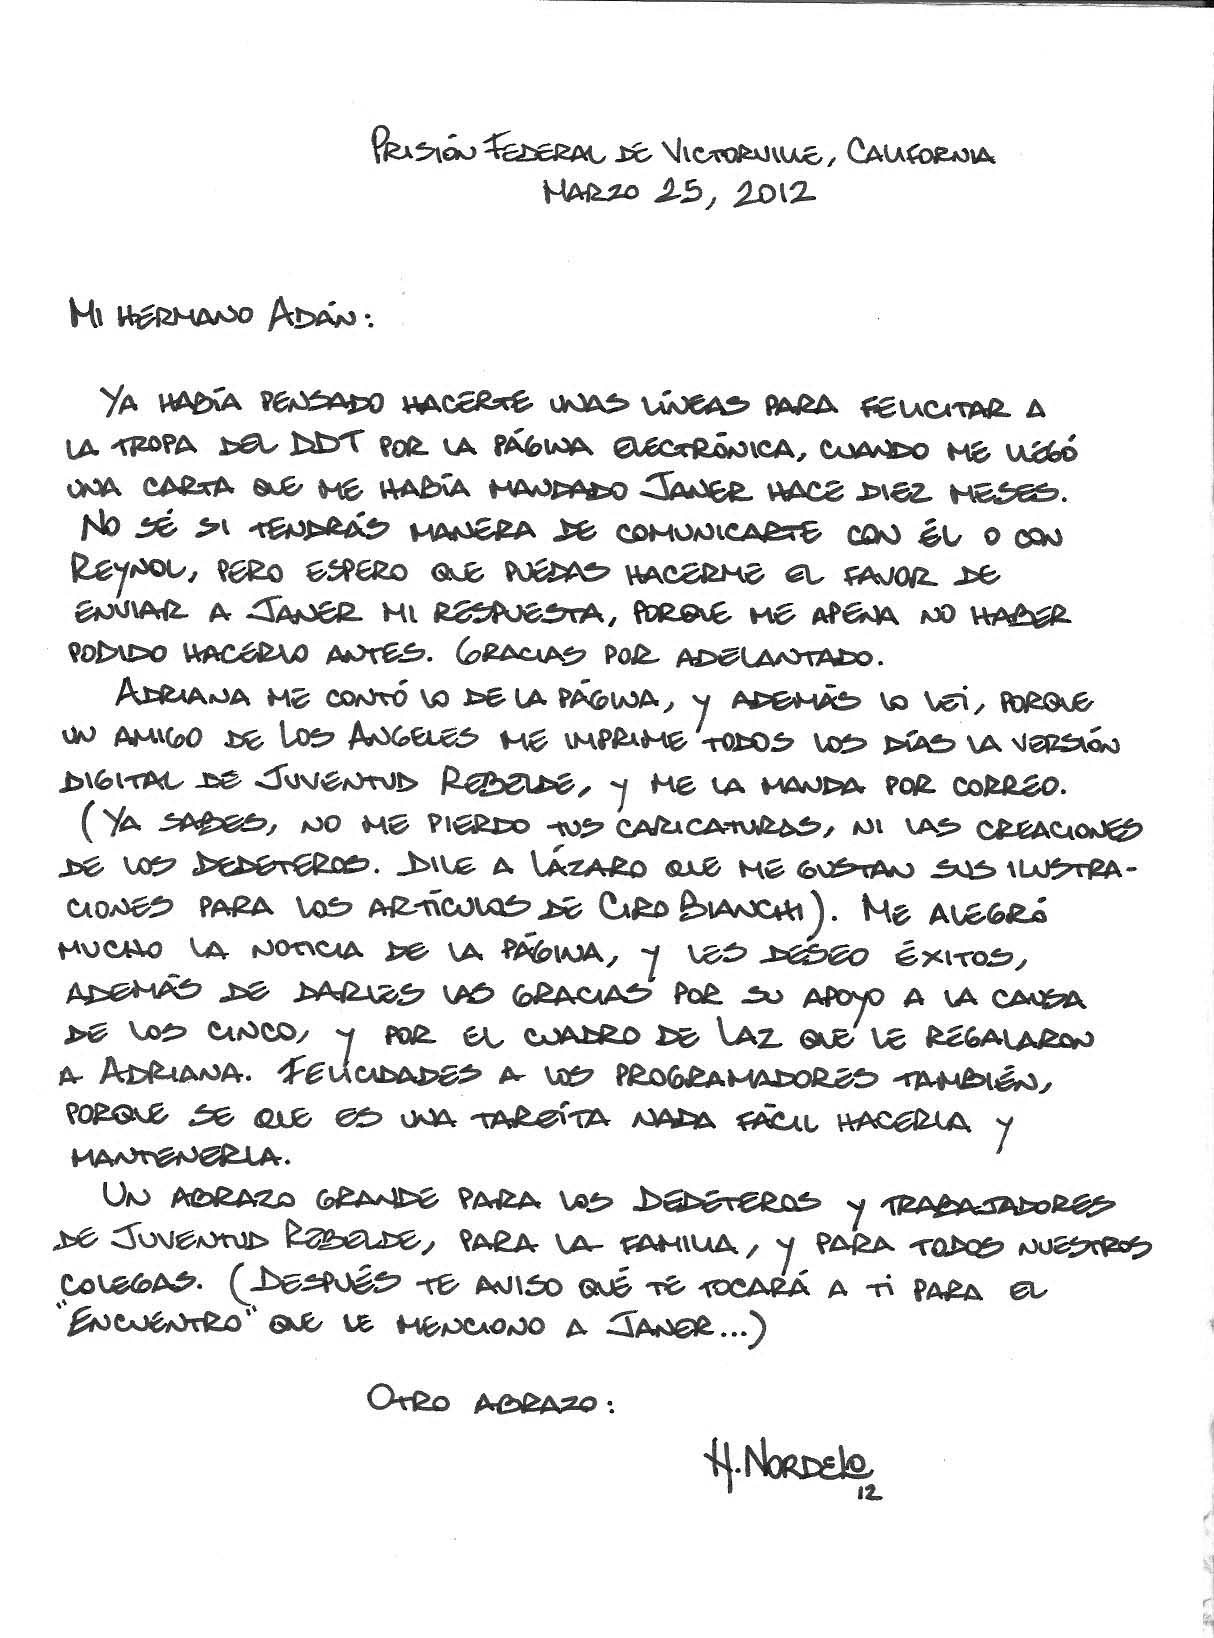 PRISIÓN FEDERAL DE VICTORVILLE, CALIFORNIA
MARZO 25, 2012
MI HERMANO ADÁN:
YA HABÍA PENSADO HACERTE UNAS LÍNEAS PARA FELICITAR A
LA TROPA DEL DDT POR LA PÁGINA ELECTRÓNICA, CUANDO ME LLEGÓ
UNA CARTA QUE ME HABÍA MANDADO JANER HACE DIEZ MESES.
NO SÉ SI TENDRÁS MANERA DE COMUNICARTE CON ÉL O CON
REYNOL, PERO ESPERO QUE PUEDAS HACERME EL FAVOR DE
ENVIAR A JANER MI RESPUESTA, PORQUE ME APENA NO HABER
PODIDO HACERLO ANTES. GRACIAS POR ADELANTADO.
ADRIANA ME CONTÓ LO DE LA PÁGINA, Y ADEMÁS LO LEÍ, PORQUE
UN AMIGO DE LOS ANGELES ME IMPRIME TODOS LOS DÍAS LA VERSIÓN
DIGITAL DE JUVENTUD REBELDE, Y ME LA MANDA POR CORREO.
(YA SABES, NO ME PIERDO TUS CARICATURAS, NI LAS CREACIONES
DE LOS DEDETEROS. DILE A LÁZARO QUE ME GUSTAN SUS ILUSTRA-
CIONES PARA LOS ARTÍCULOS DE CIRO BIANCHI). ME ALEGRÓ
MUCHO LA NOTICIA DE LA PÁGINA, Y LES DESEO ÉXITOS,
ADEMÁS DE DARLES LAS GRACIAS POR SU APOYO A LA CAUSA
DE LOS CINCO, Y POR EL CUADRO DE LAZ QUE LE REGALARON
A ADRIANA. FELICIDADES A LOS PROGRAMADORES TAMBIÉN,
PORQUE SE QUE ES UNA TAREÍTA NADA FÁCIL HACERLA Y
MANTENERLA.
UN ABRAZO GRANDE PARA LOS DEDETEROS Y TRABAJADORES
DE JUVENTUD REBELDE, PARA LA FAMILIA, Y PARA TODOS NUESTROS
COLEGAS. (DESPUÉS TE AVISO QUÉ TE TOCARÁ A TI PARA EL
"ENCUENTRO" QUE LE MENCIONO A JANER...)
OTRO ABRAZO:
H. NORDELO
12